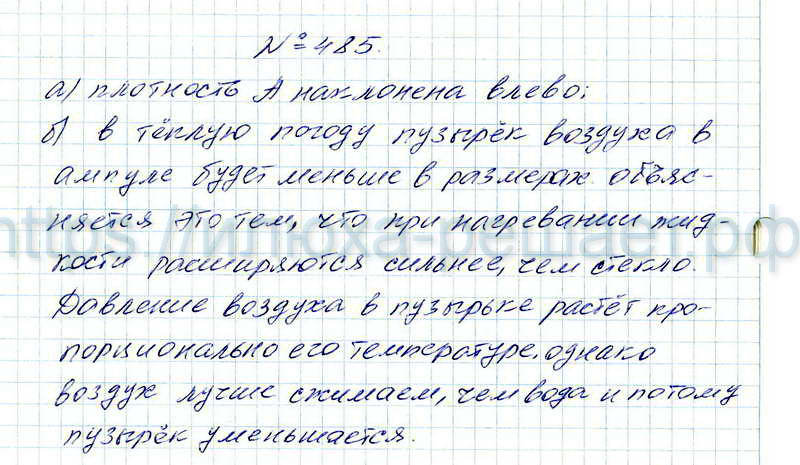 №485.
а) плотность А наклонена влево;
б) в тёплую погоду пузырёк воздуха в
ампуле будет меньше в размерах. объяс-
няется это тем, что при нагревании жид-
https://илюха-решает.рф
кости расширяются сильнее, чем стекло.
Давление воздуха в пузырьке растёт про-
порционально его температуре. однако
воздух лучше сжимаем, чем вода и потому
пузырёк уменьшается.